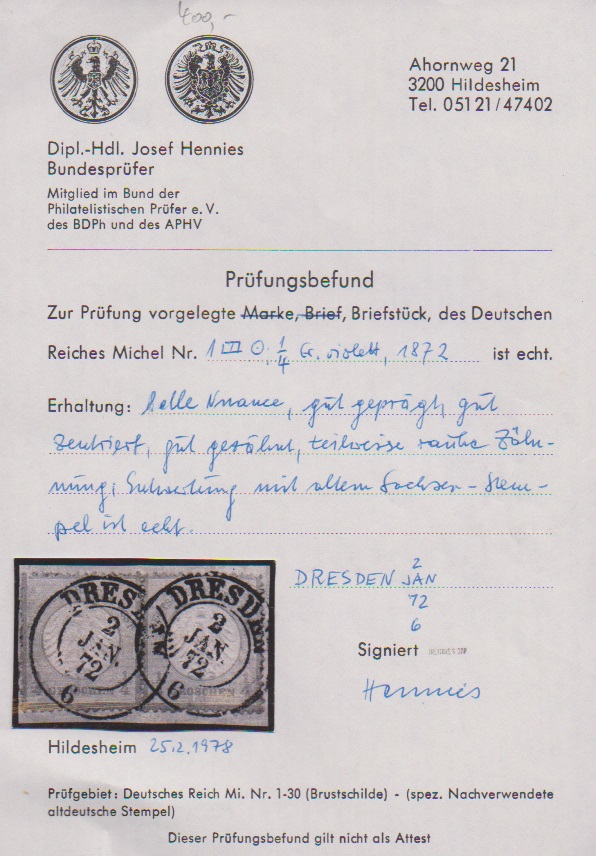 400,-
Ahornweg 21
3200 Hildesheim
Tel. 05121/47402
Dipl.-Hdl. Josef Hennies
Bundesprüfer
Mitglied im Bund der
Philatelistischen Prüfer e. V.
des BDPh und des APHV
Prüfungsbefund
Zur Prüfung vorgelegte Marke, Brief, Briefstück, des Deutschen
Reiches Michel Nr. 1 III ⊙, 1/4 Gr. violett, 1872 ist echt.
Erhaltung: helle Nuance, gut geprägt, gut
zentriert, gut gezähnt, teilweise rauhe Zäh-
nung; Entwertung mit altem Sachsen-Stem-
pel ist echt.
DRESDEN 2 JAN 72 6
DRESDEN
2
JAN.
72
6
DRESDEN
2
JAN.
72
6
GROSCHEN
Signiert HENNIES BPP
Hennies
Hildesheim 25.2.1978
Prüfgebiet: Deutsches Reich Mi. Nr. 1-30 (Brustschilde) - (spez. Nachverwendete
altdeutsche Stempel)
Dieser Prüfungsbefund gilt nicht als Attest